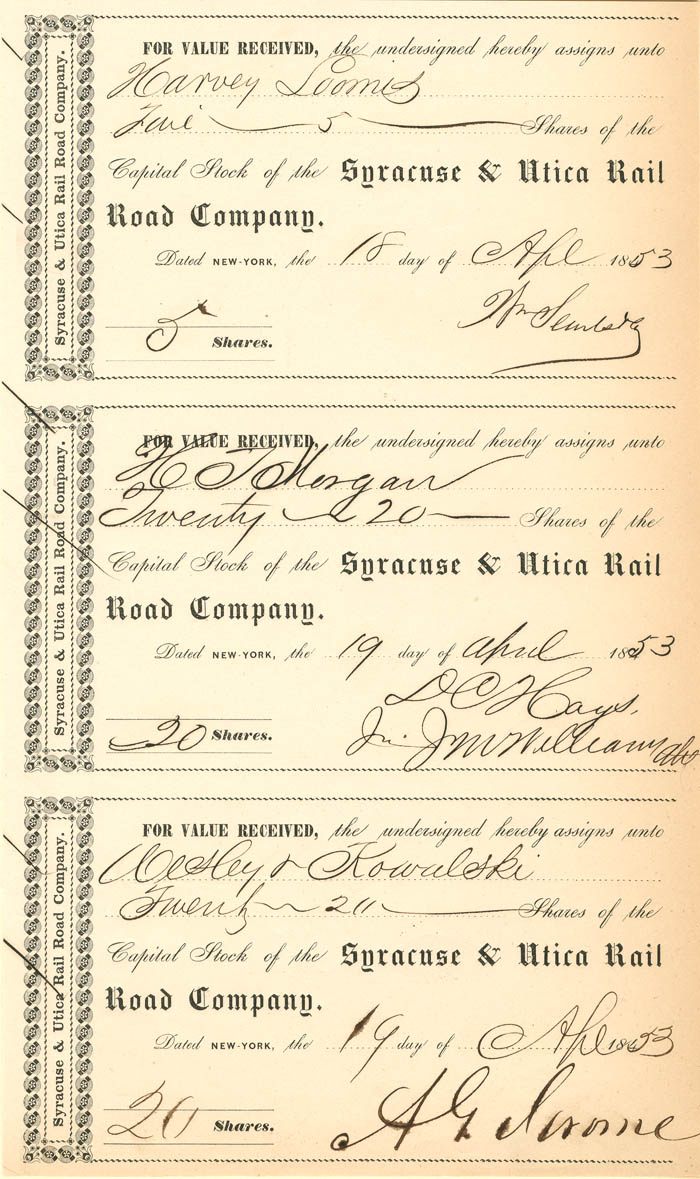 Syracuse & Utica Rail Road Company.
FOR VALUE RECEIVED, the undersigned hereby assigns unto
Harvey Loomis
Five 5 Shares of the
Capital Stock of the Syracuse & Utica Rail
Road Company.
Dated NEW-YORK, the 18 day of Apl 1853
Wm
5 Shares.
Syracuse & Utica Rail Road Company.
FOR VALUE RECEIVED, the undersigned hereby assigns unto
H T Morgan
Twenty 20 Shares of the
Capital Stock of the Syracuse & Utica Rail
Road Company.
Dated NEW-YORK, the 19 day of April 1853
D C Hays
20 Shares.
Syracuse & Utica Rail Road Company.
FOR VALUE RECEIVED, the undersigned hereby assigns unto
Wesley & Kowalski
Twenty 20 Shares of the
Capital Stock of the Syracuse & Utica Rail
Road Company.
Dated NEW-YORK, the 19 day of Apl 1853
20 Shares.
A G Jerome